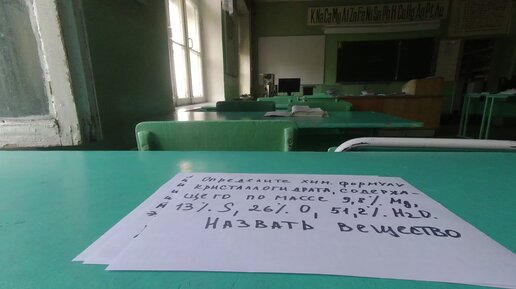 K Na Ca Mg Al Zn Fe Ni Sn Pb H Cu Hg Ag Pt Au
Определите хим. формулу
кристаллогидрата, содержа-
щего по массе 9,8% Mg,
13% S, 26% O, 51,2% H2O.
Назвать вещество